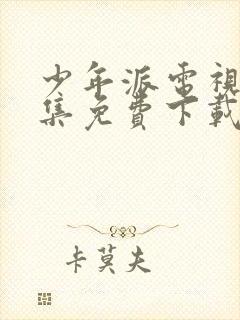 少年派電視
集免費下載
卡莫夫